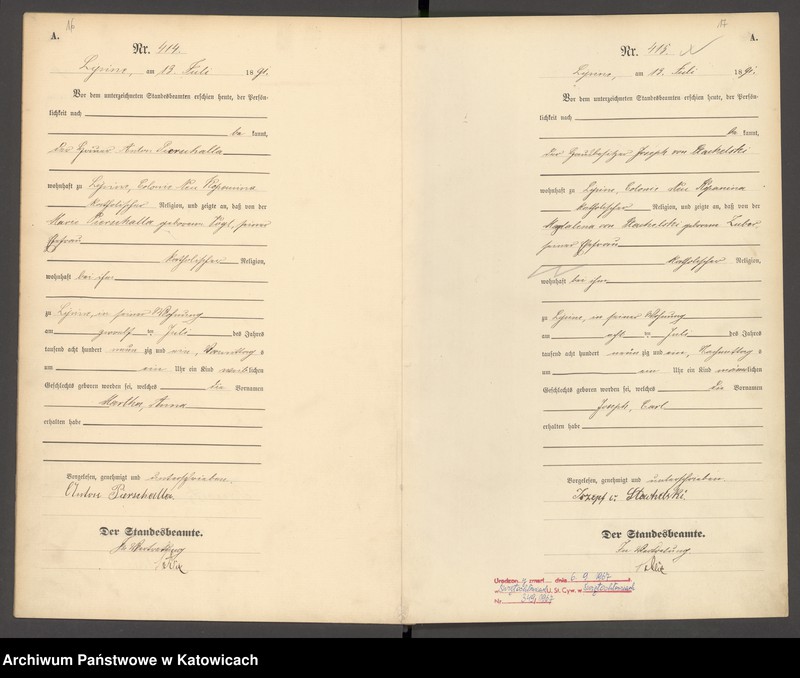 A.
Nr. 414.
Lipine, am 13. Juli 1891.
Vor dem unterzeichneten Standesbeamten erschien heute, der Persön-
lichkeit nach
be kannt,
der Anton Pierschalla
wohnhaft zu Lipine, Colonie
katholischer Religion, und zeigte an, daß von der
Marie Pierschalla geborene Vogl, seiner
Ehefrau
katholischer Religion,
wohnhaft bei ihm
zu Lipine, in seiner Wohnung
am zwölf ten Juli des Jahres
tausend acht hundert neun zig und ein, Vormittag s
um ein Uhr ein Kind weiblichen
Geschlechts geboren worden sei, welches die Vornamen
Martha, Anna
erhalten habe
Vorgelesen, genehmigt und unterschrieben.
Anton Pierschalla
Der Standesbeamte.
In Vertretung
17
A.
Nr. 415.
Lipine, am 13. Juli 1891.
Vor dem unterzeichneten Standesbeamten erschien heute, der Persön-
lichkeit nach
be kannt,
der Hausbesitzer Joseph von Stachelski
wohnhaft zu Lipine, Colonie
katholischer Religion, und zeigte an, daß von der
Magdalena von Stachelski geborene Zuber,
seiner Ehefrau
katholischer Religion,
wohnhaft bei ihm
zu Lipine, in seiner Wohnung
am acht ten Juli des Jahres
tausend acht hundert neun zig und ein, Nachmittag s
um ein Uhr ein Kind männlichen
Geschlechts geboren worden sei, welches die Vornamen
Joseph, Carl
erhalten habe
Vorgelesen, genehmigt und unterschrieben.
Jozeph v. Stachelski
Der Standesbeamte.
In Vertretung
zmarł dnia 6. 9. 1967 r.
w U. St. Cyw. w
Nr.
Archiwum Państwowe w Katowicach